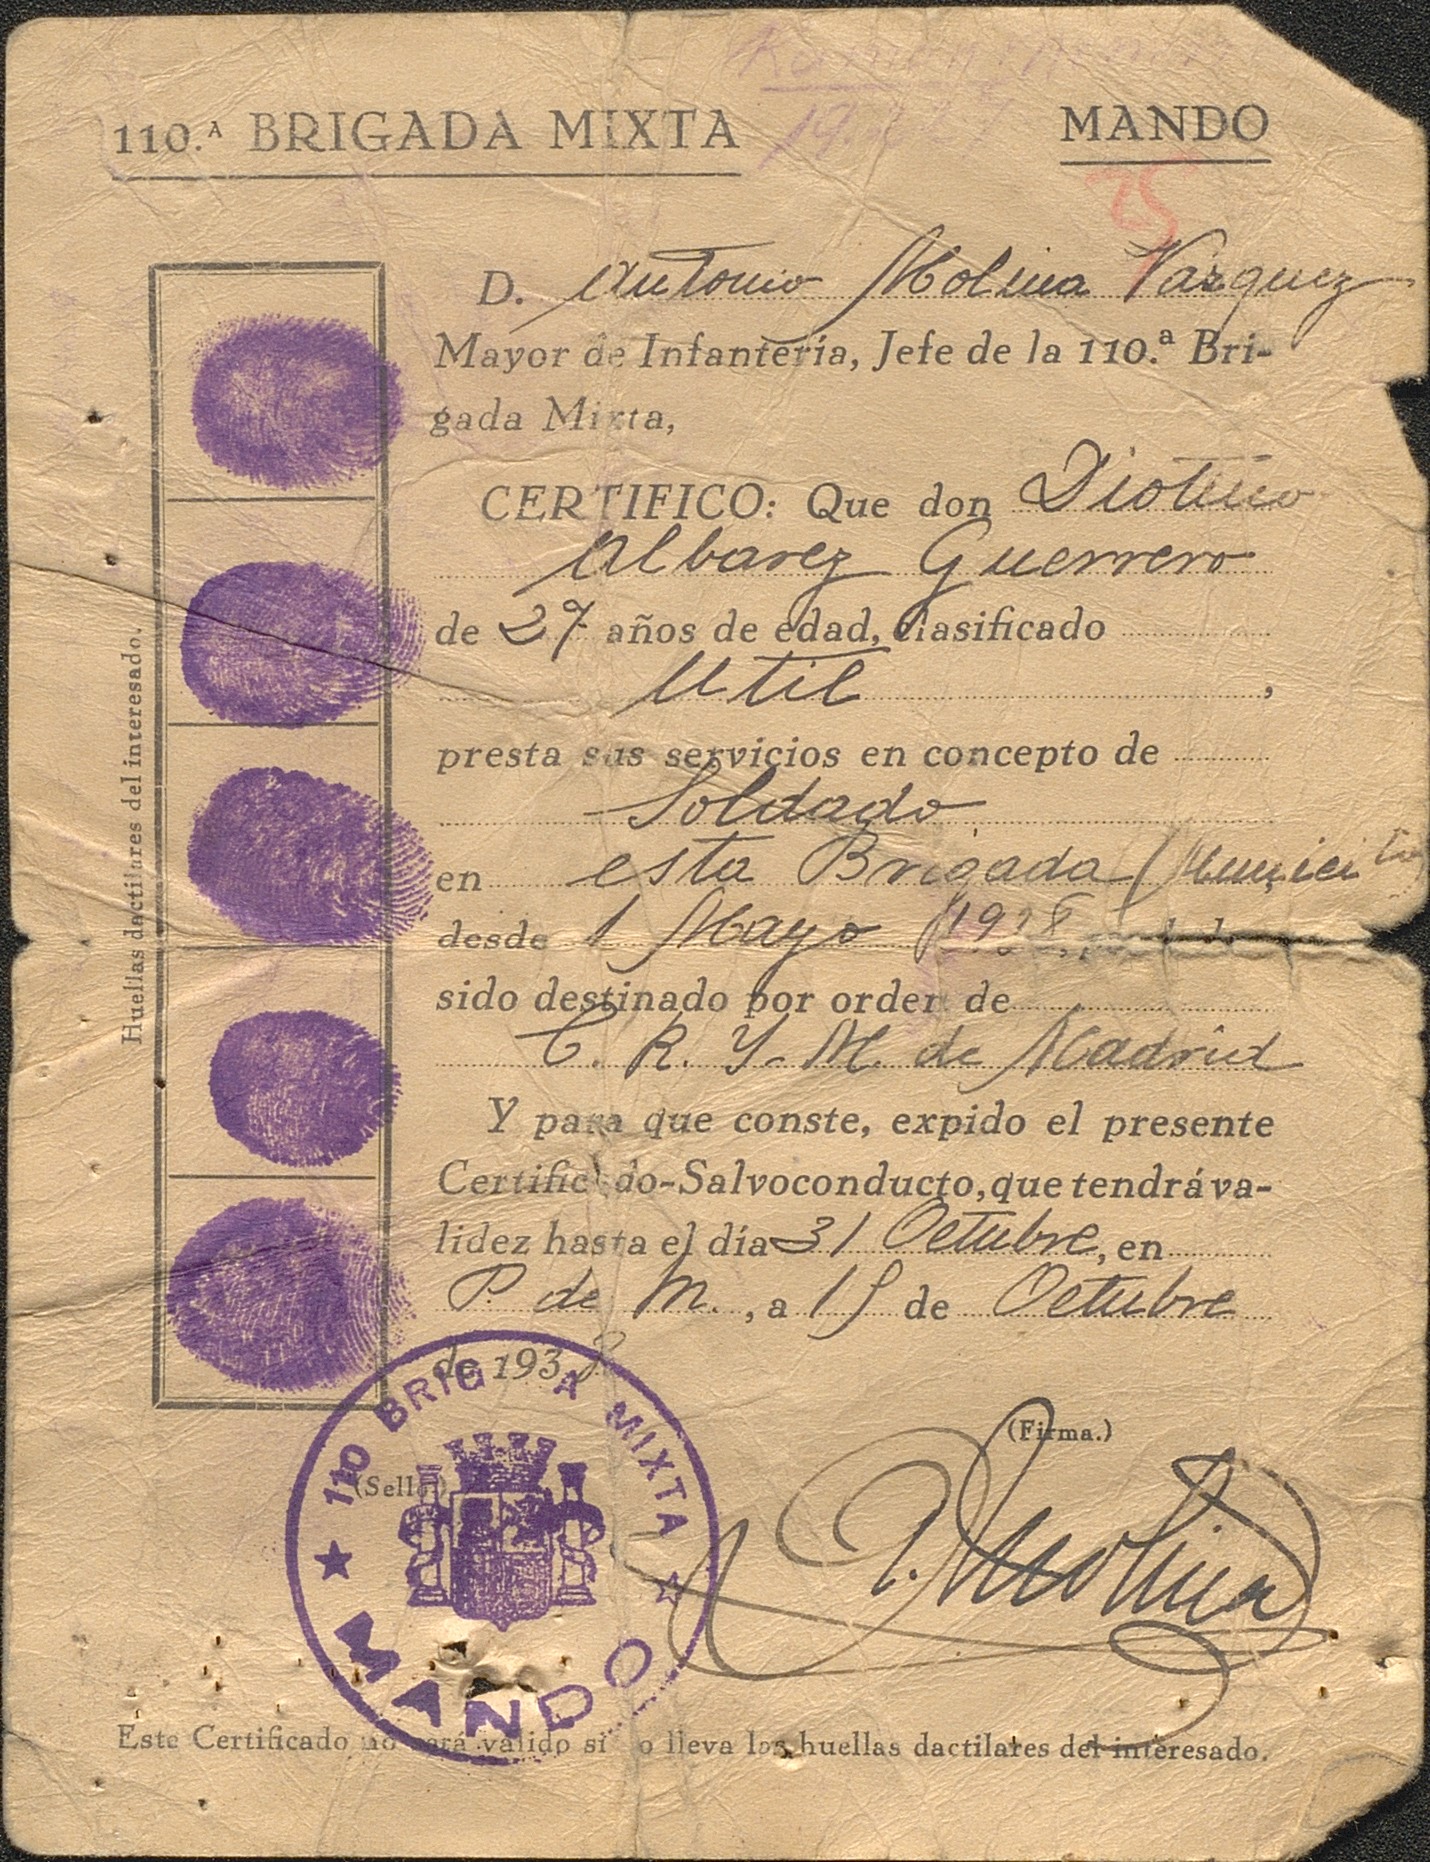 110.ª BRIGADA MIXTA
MANDO
75
D. Antonio Molina Vazquez
Mayor de Infantería, Jefe de la 110.ª Bri-
gada Mixta,
CERTIFICO: Que don
Albarez Guerrero
de 27 años de edad, clasificado
Util ,
presta sus servicios en concepto de
Soldado
en esta Brigada
desde 1 Mayo 1938
sido destinado por orden de
C. R. Y. M. de Madrid
Y para que conste, expido el presente
Certificado-Salvoconducto, que tendrá va-
lidez hasta el día 31 Octubre, en
P. de M., a 15 de Octubre
de 1938
Huellas dactilares del interesado.
(Firma.)
(Sello)
110 BRIGADA MIXTA
MANDO
A. Molina
Este Certificado no será válido si no lleva las huellas dactilares del interesado.